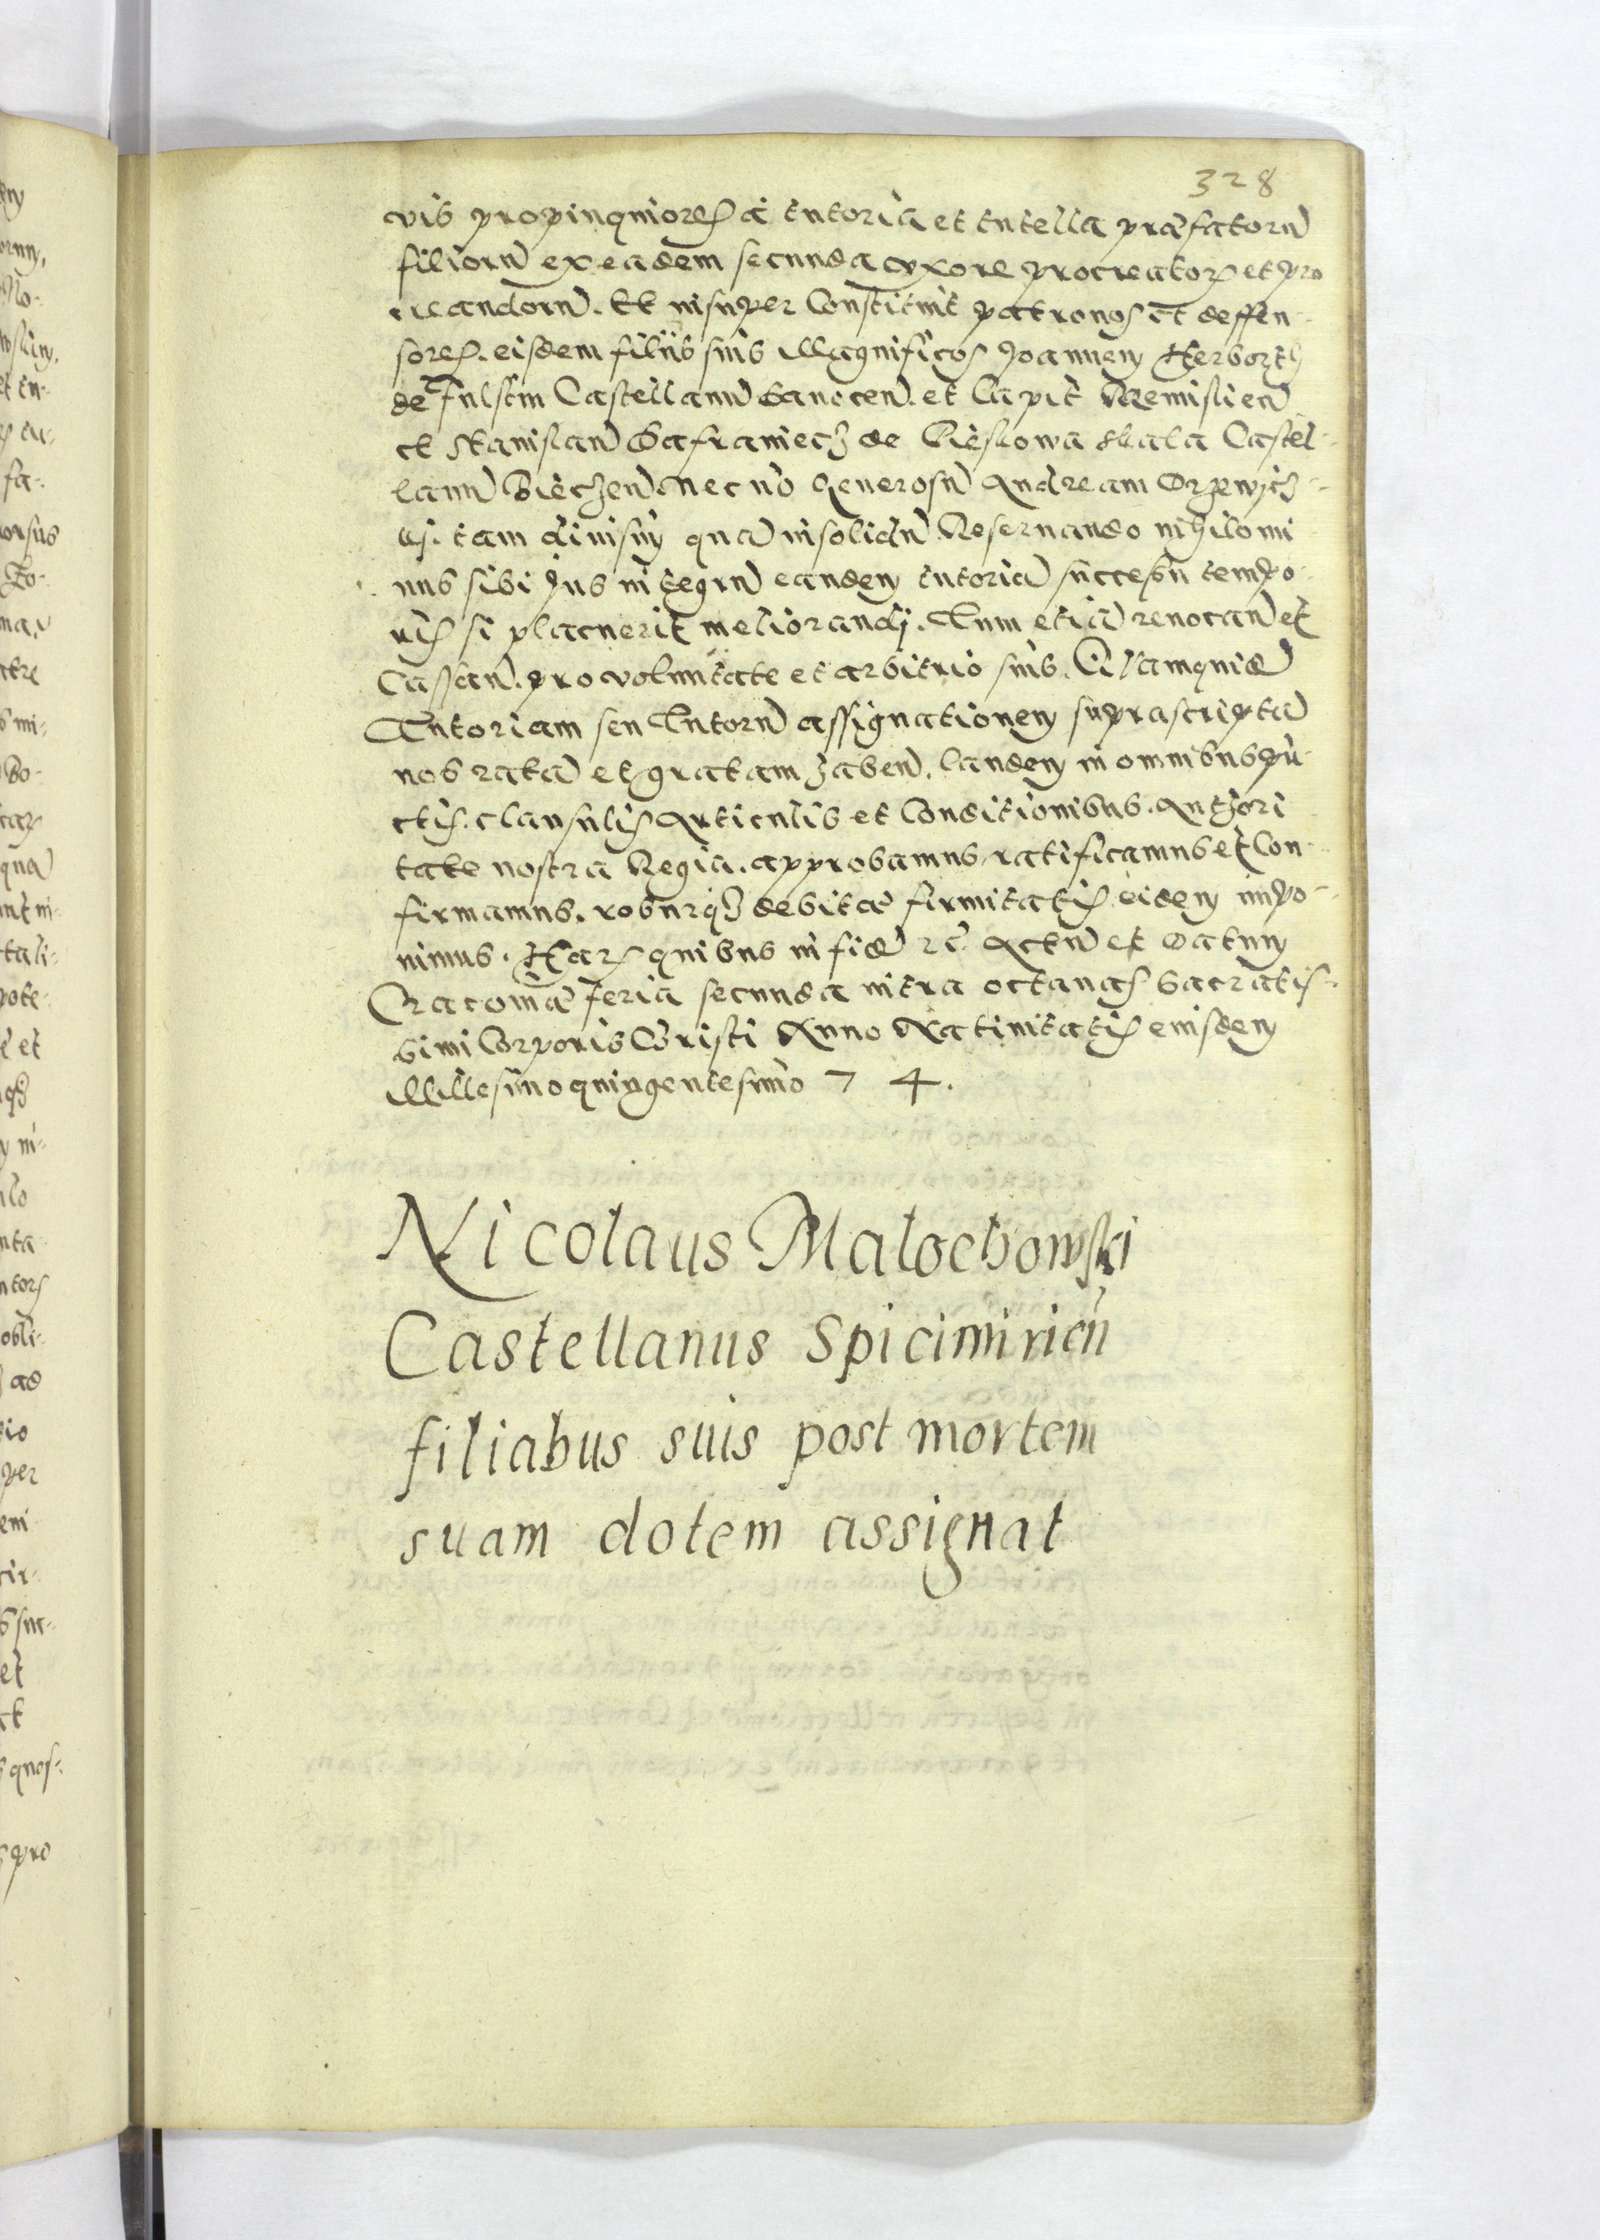 328
vis propinquiores á tutoria et tutella praefatorū
filiorū ex eadem secunda uxore procreator et pro
creandorū. Et insuper Constituit patronos et deffen-
sores. eisdem filiis suis Magnificos Joannem Herborth
de Fulstin Castellanū Sanocen. et Capit Premislien
et Stanislaū Safraniecz de Pieskowa Skala Castel-
lanū Biečzen. Nec nō Generosū Andream
tam divisim quā insolidū. Reservando nihilomi
nus sibi Jus integrū eandem tutoriā successu tempo-
ris si placuerit meliorandj. Tum etiā revocan et
Cassan. pro voluntate et arbitrio suis. Quamquidē
Tutoriam seu Tutorū assignationem suprascriptā
nos ratā et gratam haben. eandem in omnibus pū-
ctis. clausulis Articulis et Conditionibus. Authori
tate nostra Regia. approbamus, ratificamus et Con-
firmamus. roburq3 debitae firmitatis eidem impo-
nimus. Har quibus in fidē rc̄. Actū et Datum
Cracoviae feria secunda intra octavas Sacratis-
simi Corporis Christi Anno Nativitatis eiusdem
Millesimo quingentesimo 7 4.
Nicolaus Malochowski
Castellanus Spicimirień
filiabus suis post mortem
suam dotem assignat